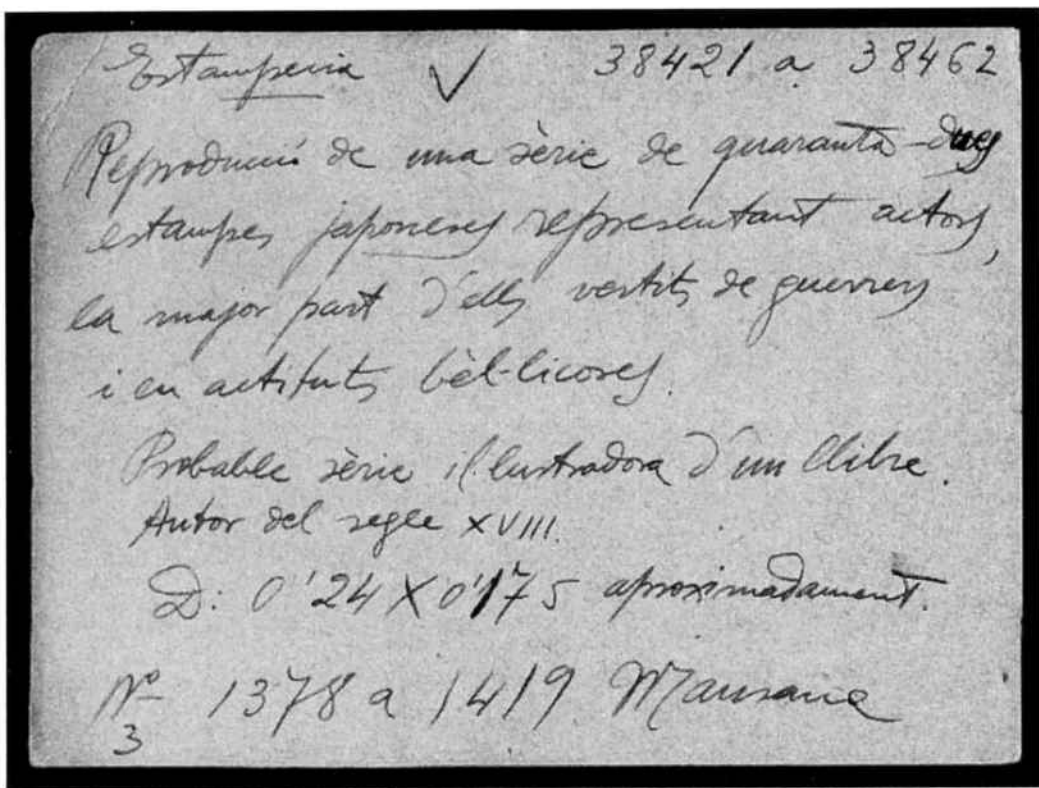 Estamperia ✓ 38421 a 38462
Reproducció de una sèrie de quaranta-dues
estampes japoneses representant actors,
la major part d'ells vestits de guerrers
i en actituts bèl-licoses.
Probable sèrie il·lustradora d'un llibre.
Autor del segle XVIII.
D: 0'24 X 0'175 aproximadament.
Nº 1378 a 1419 Mansana
3